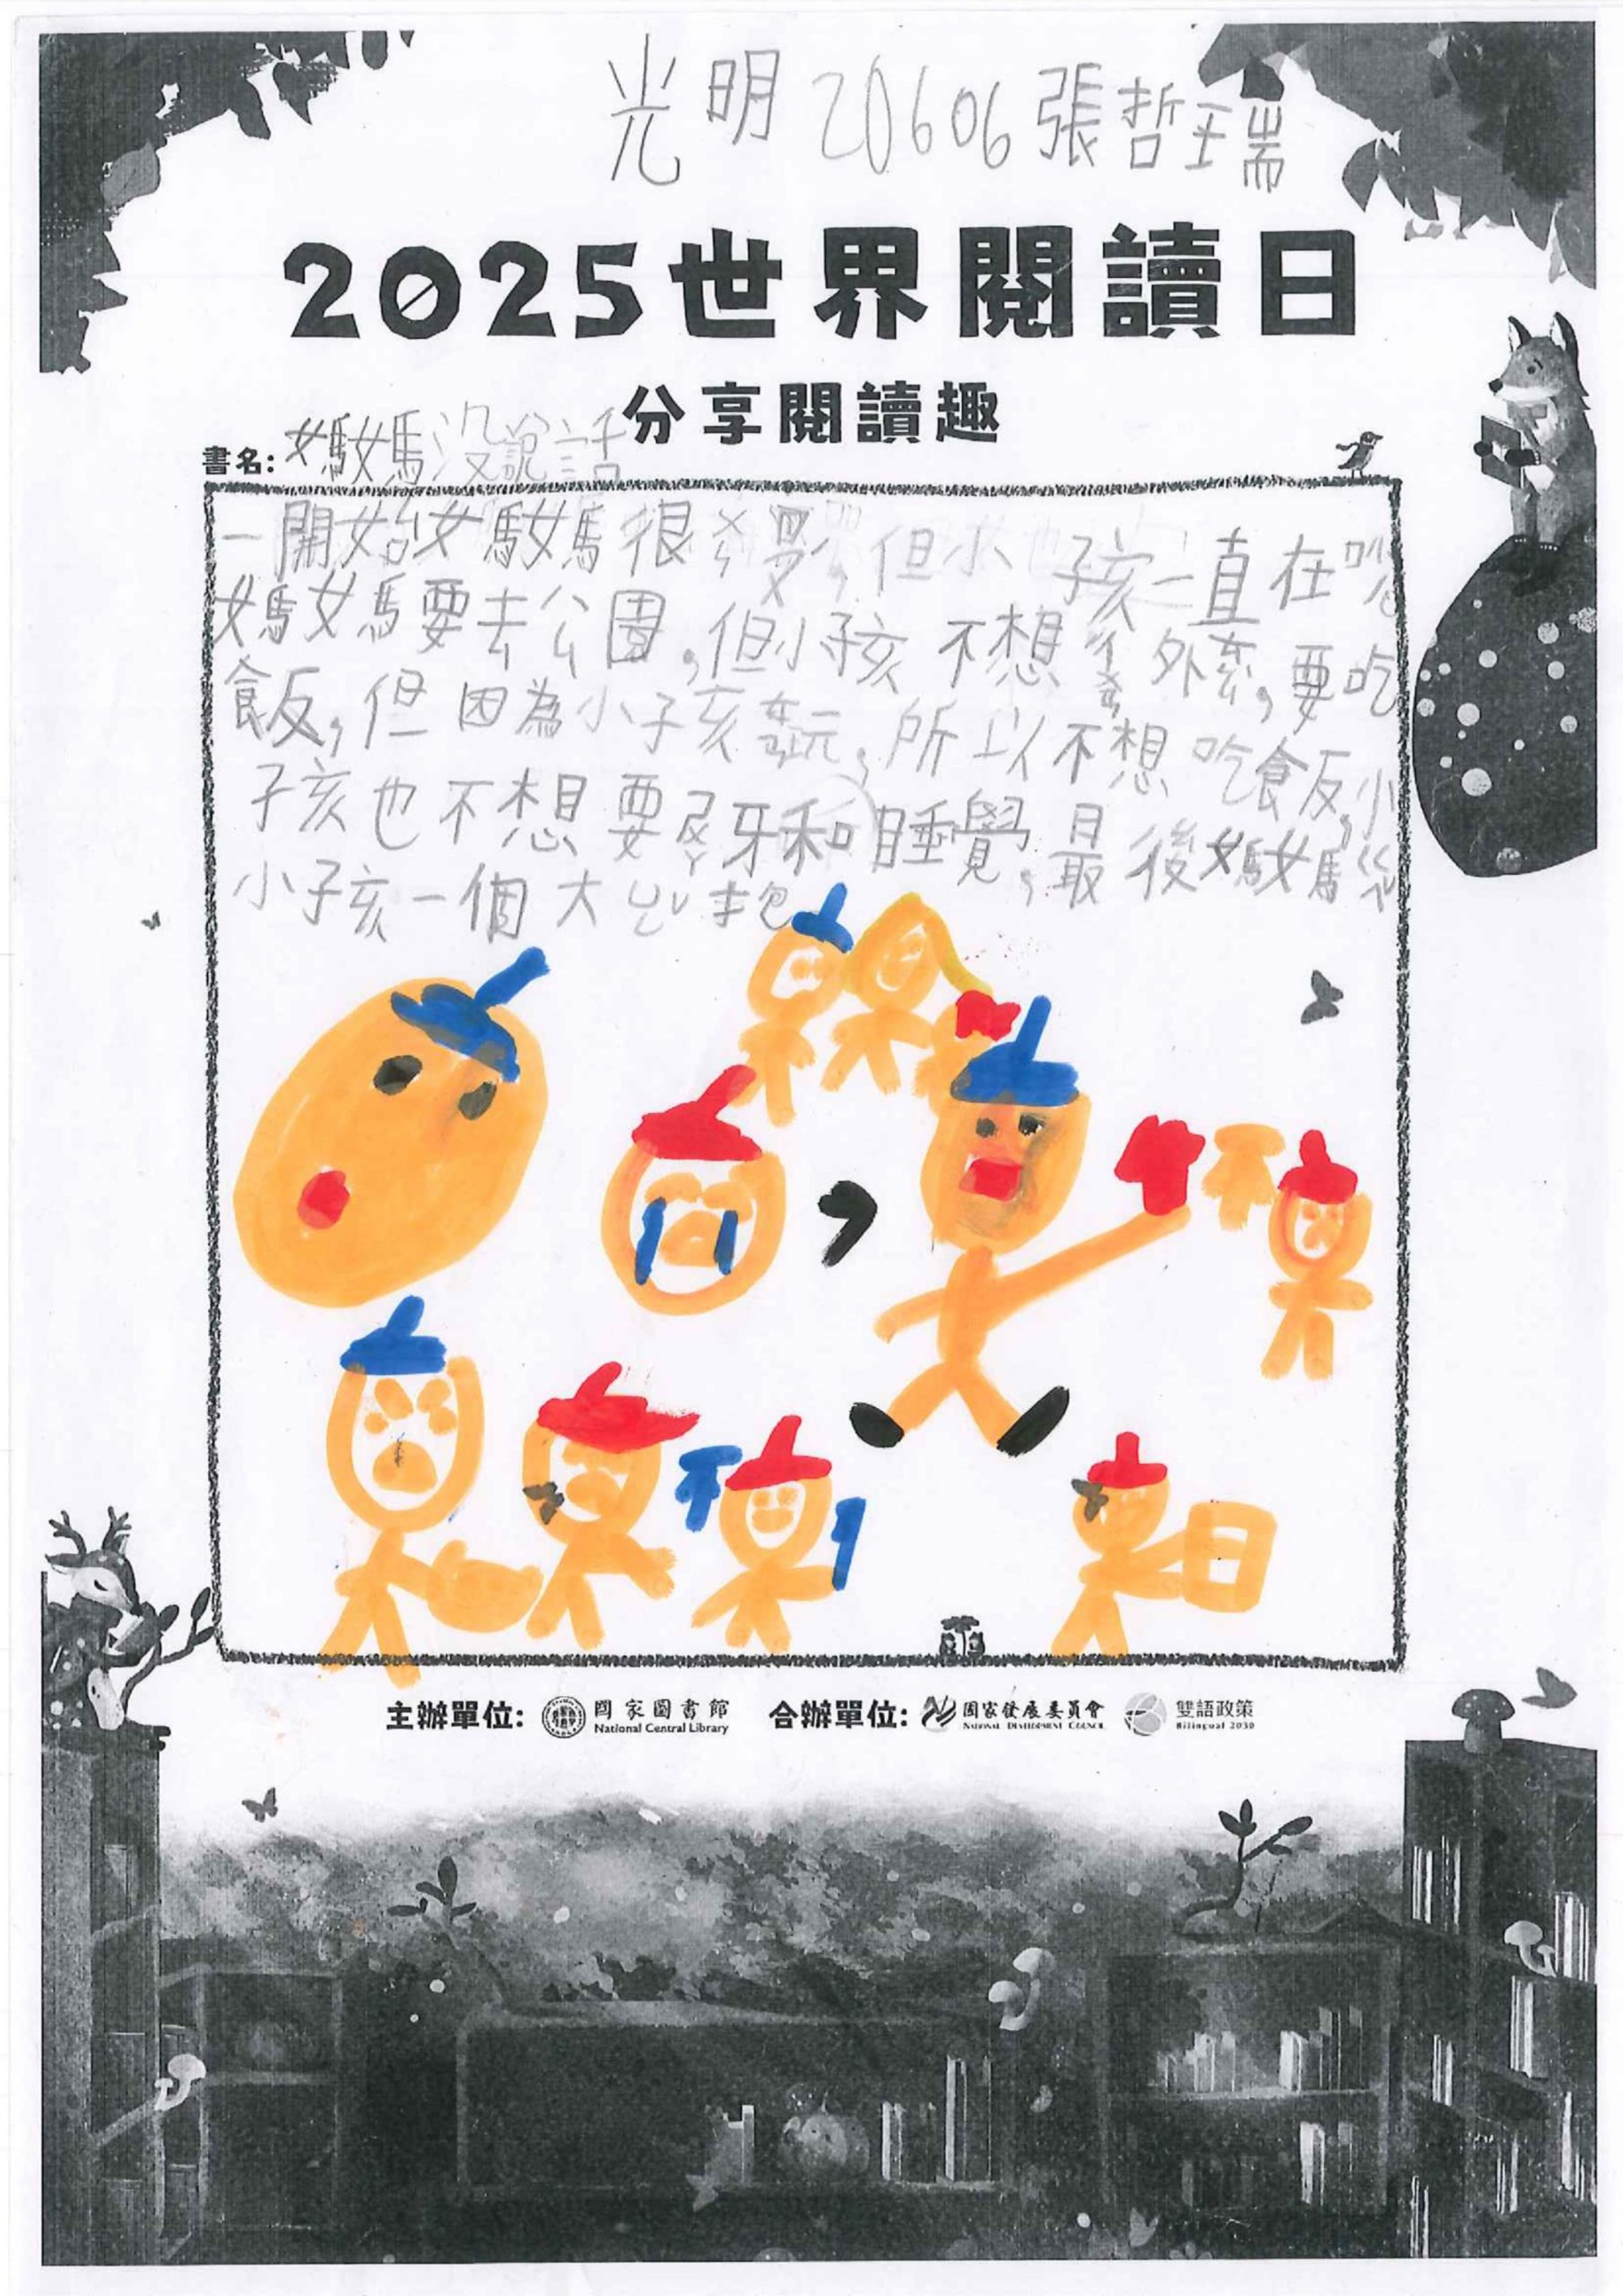 光明 20606 張哲瑞
2025世界閱讀日
分享閱讀趣
書名: 媽媽沒說話
一開始媽媽很ㄇㄤˊ,但小孩一直在吵
媽媽要去公園,但小孩不想 外套,要吃
飯,但因為小孩玩,所以不想吃飯,小
孩也不想要ㄕㄨㄚ牙和睡覺,最後媽媽給
小孩一個大ㄩㄥ抱
主辦單位: 國家圖書館 National Central Library 合辦單位: 國家發展委員會 NATIONAL DEVELOPMENT COUNCIL 雙語政策 Bilingual 2030